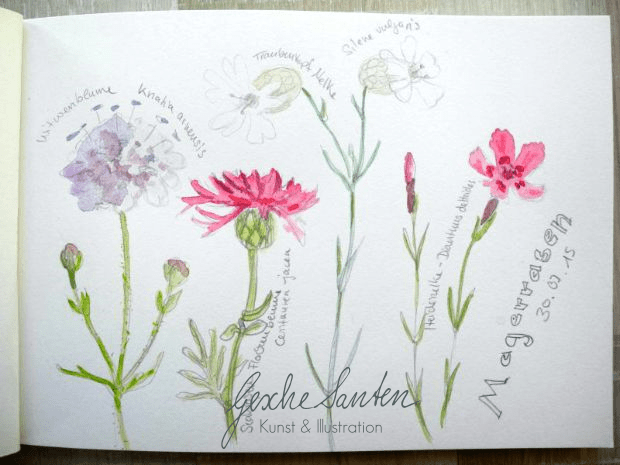 Witwenblume
Knatia arvensis
Traubenkopf Nelke
Silene vulgaris
Flockenblume
Centaurea jacea
Heidenelke - Dianthus deltoides
Magerrasen
30.07.15
Gesche Santen
Kunst & Illustration